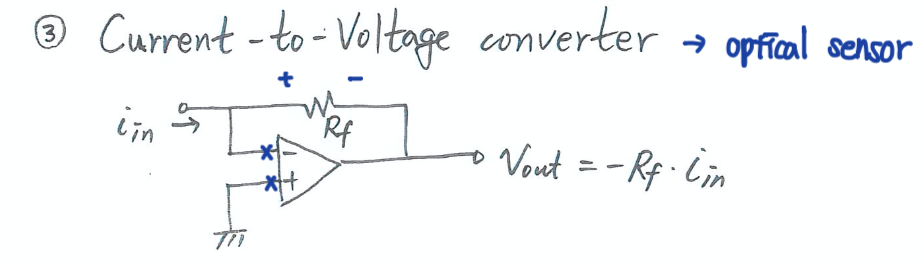 ③ Current-to-Voltage converter → optical sensor
+ -
i_in →
Rf
x -
x +
Vout = -Rf · i_in